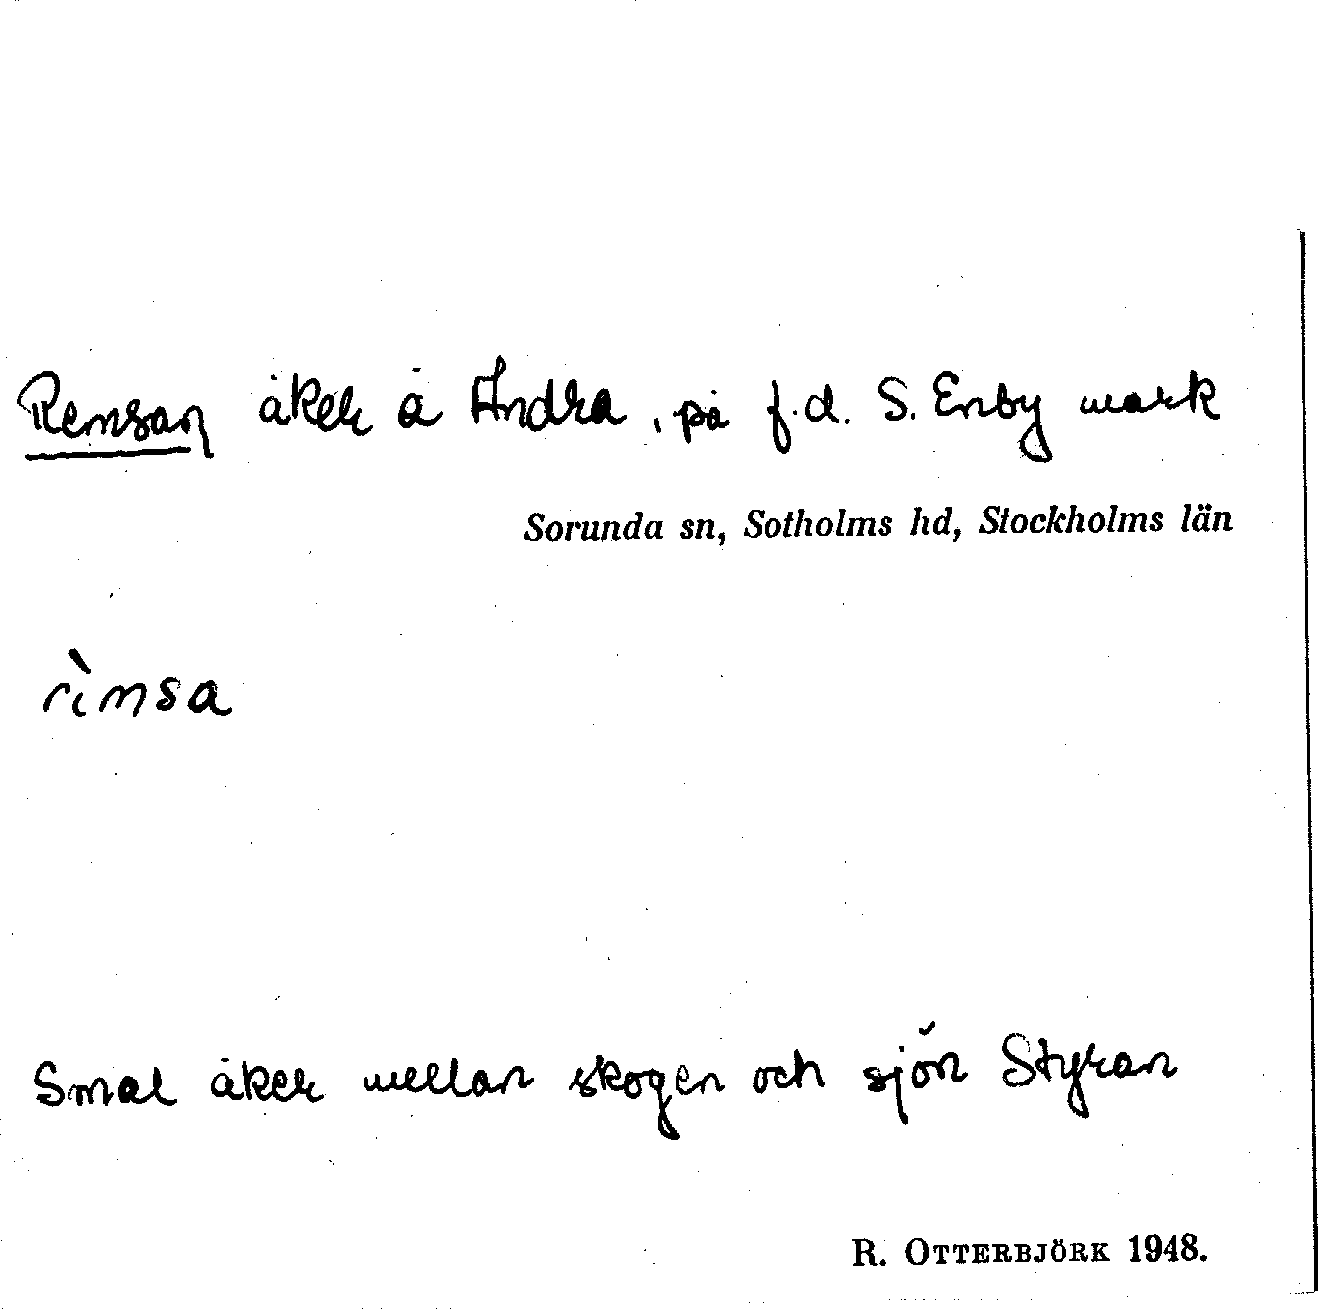 Remsan åker å Ändra, på f.d. S. Enby mark
Sorunda sn, Sotholms hd, Stockholms län
rìmsa
Smal åker mellan skogen och sjön Styran
R. OTTERBJÖRK 1948.